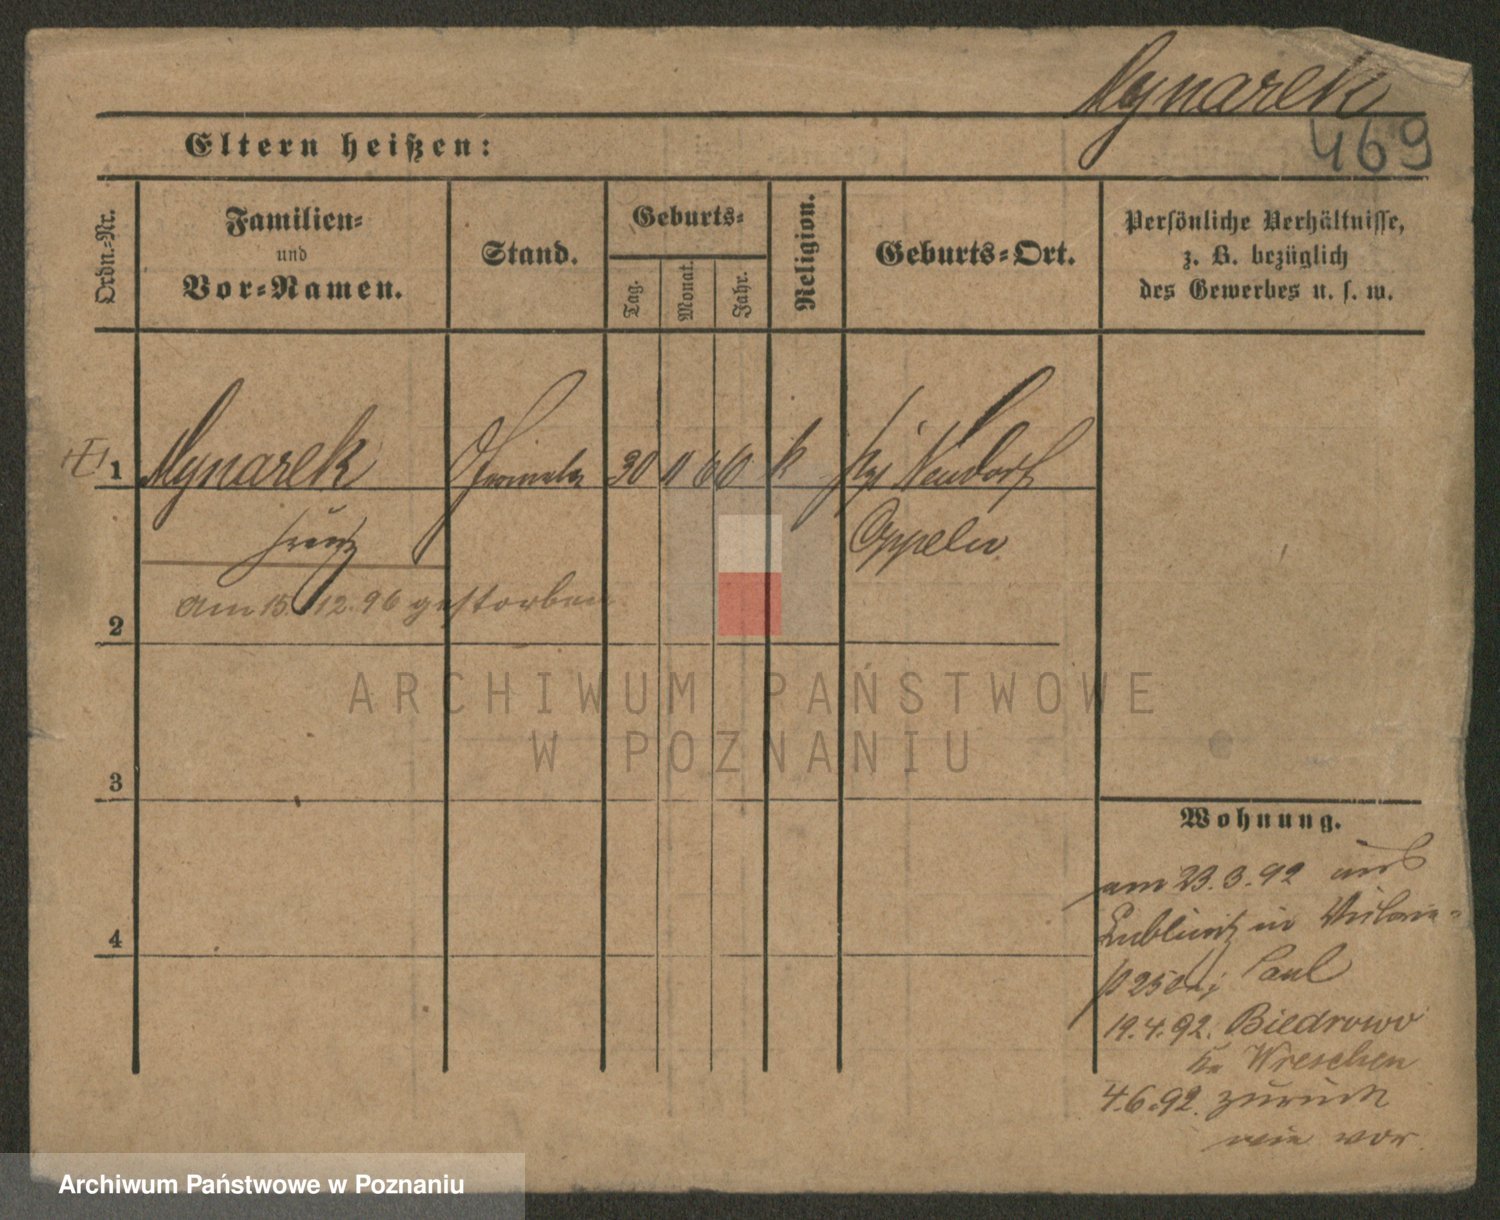 Mynarek
469
Eltern heißen:
Ordn.-Nr.
Familien-
und
Vor-Namen.
Stand.
Geburts-
Tag.
Monat.
Jahr.
Religion.
Geburts-Ort.
Persönliche Verhältnisse,
z. B. bezüglich
des Gewerbes u. s. w.
1 Mynarek 30 11 60 k Neudorf
Franz Oppeln
am 15. 12. 96 gestorben
2
3
4
Wohnung.
am 23.3.92 aus
Lublinitz in
Paul
19.4.92. Biedrowo
Kr Wreschen
4.6.92. zurück
wie vor
ARCHIWUM PAŃSTWOWE
W POZNANIU
Archiwum Państwowe w Poznaniu